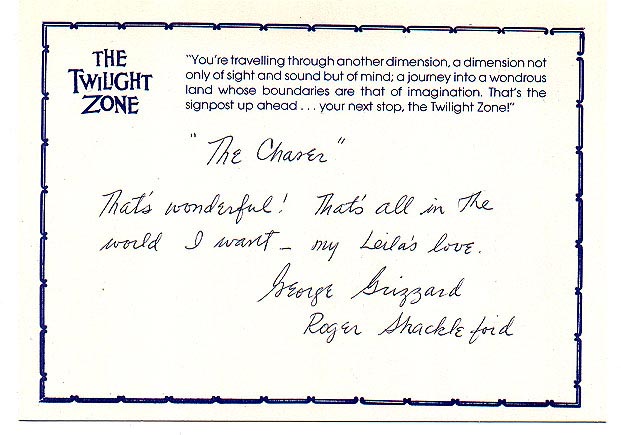 THE
TWILIGHT
ZONE
"You're travelling through another dimension, a dimension not
only of sight and sound but of mind; a journey into a wondrous
land whose boundaries are that of imagination. That's the
signpost up ahead . . . your next stop, the Twilight Zone!"
"The Chaser"
That's wonderful! That's all in the
world I want – my Leila's love.
George Grizzard
Roger Shackleford